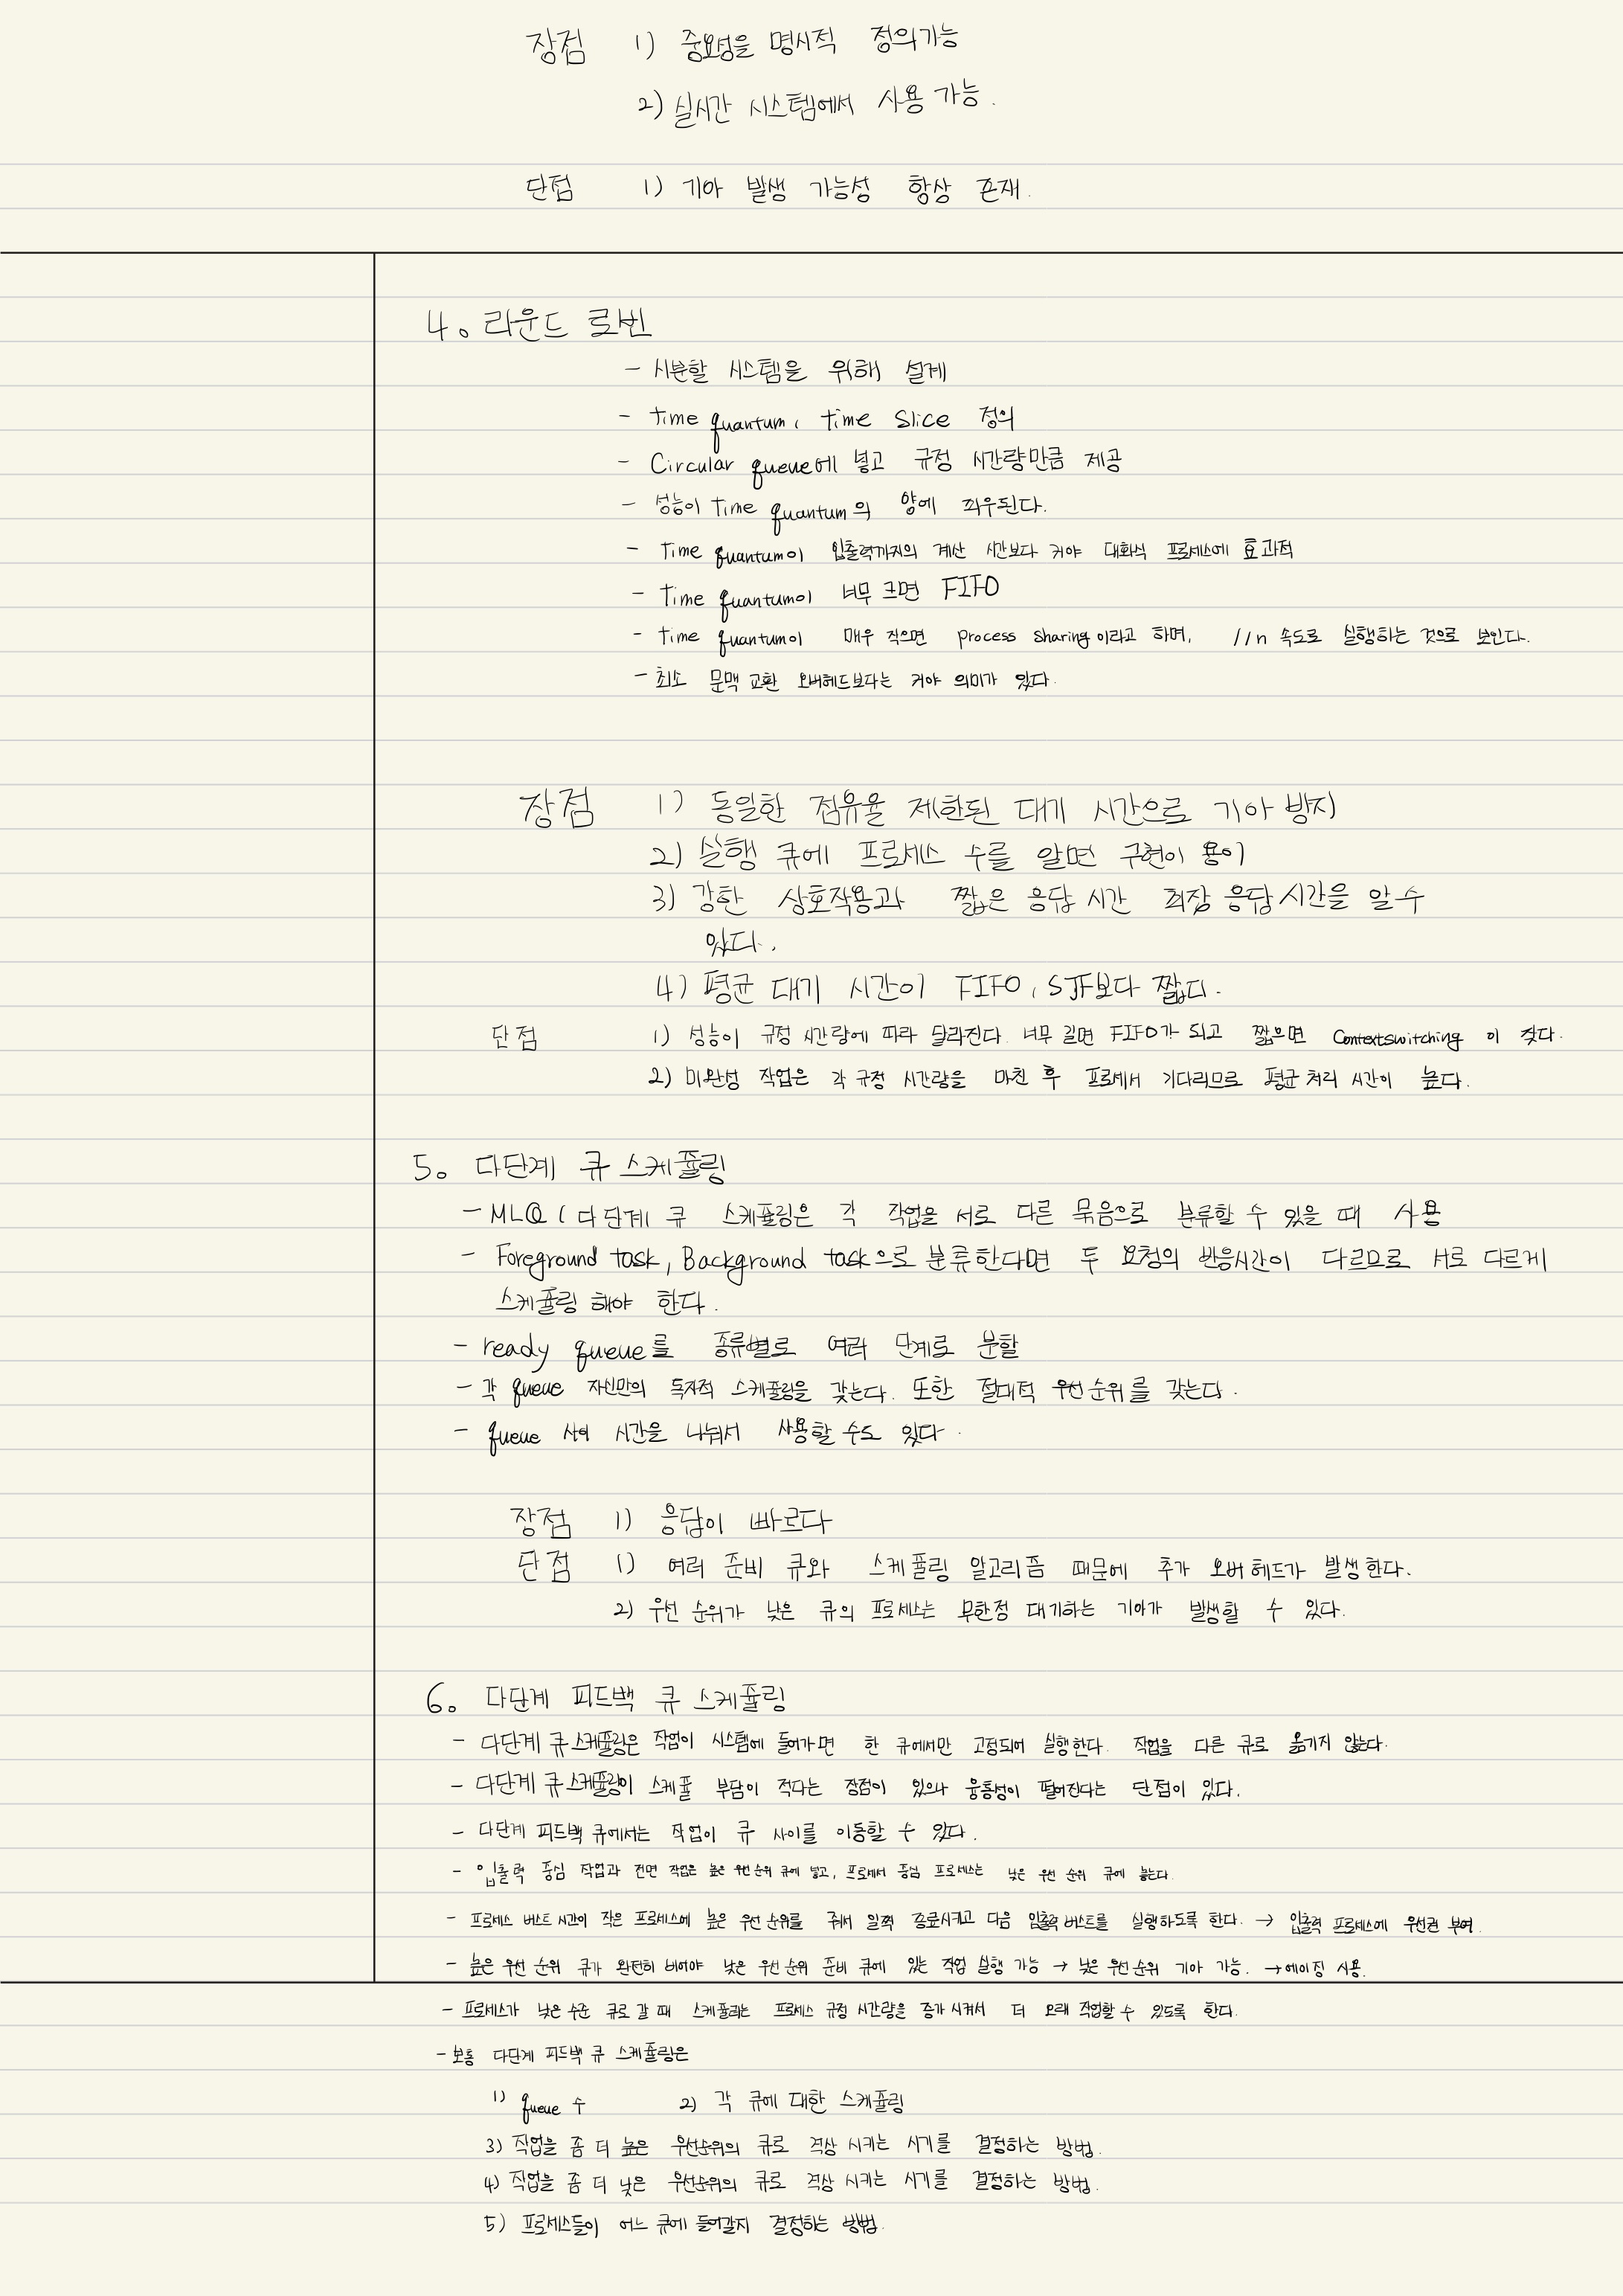 장점 1) 중요성을 명시적 정의가능
2) 실시간 시스템에서 사용 가능.
단점 1) 기아 발생 가능성 항상 존재.
4. 라운드 로빈
- 시분할 시스템을 위해 설계
- time quantum, time slice 정의
- Circular queue에 넣고 규정 시간량만큼 제공
- 성능이 time quantum의 양에 좌우된다.
- time quantum이 입출력까지의 계산 시간보다 커야 대화식 프로세스에 효과적
- time quantum이 너무 크면 FIFO
- time quantum이 매우 작으면 process sharing이라고 하며, 1/n 속도로 실행하는 것으로 보인다.
- 최소 문맥 교환 오버헤드보다는 커야 의미가 있다.
장점 1) 동일한 점유율 제한된 대기 시간으로 기아 방지
2) 실행 큐에 프로세스 수를 알면 구현이 용이
3) 강한 상호작용과 짧은 응답 시간 최장 응답 시간을 알 수
있다.
4) 평균 대기 시간이 FIFO, SJF보다 짧다.
단점 1) 성능이 규정 시간량에 따라 달라진다. 너무 길면 FIFO가 되고 짧으면 Contextswitching 이 잦다.
2) 미완성 작업은 각 규정 시간량을 마친 후 프로세서 기다리므로 평균 처리 시간이 높다.
5. 다단계 큐 스케쥴링
- MLQ (다단계 큐 스케쥴링은 각 작업을 서로 다른 묶음으로 분류할 수 있을 때 사용
- Foreground task, Background task으로 분류한다면 두 요청의 반응시간이 다르므로 서로 다르게
스케쥴링 해야 한다.
- ready queue를 종류별로 여러 단계로 분할
- 각 queue 자신만의 독자적 스케쥴링을 갖는다. 또한 절대적 우선순위를 갖는다.
- queue 사이 시간을 나눠서 사용할 수도 있다.
장점 1) 응답이 빠르다
단점 1) 여러 준비 큐와 스케쥴링 알고리즘 때문에 추가 오버 헤드가 발생한다.
2) 우선 순위가 낮은 큐의 프로세스는 무한정 대기하는 기아가 발생할 수 있다.
6. 다단계 피드백 큐 스케쥴링
- 다단계 큐스케쥴링은 작업이 시스템에 들어가면 한 큐에서만 고정되어 실행한다. 작업을 다른 큐로 옮기지 않는다.
- 다단계 큐스케쥴링이 스케쥴 부담이 적다는 장점이 있으나 융통성이 떨어진다는 단점이 있다.
- 다단계 피드백 큐에서는 작업이 큐 사이를 이동할 수 있다.
- 입출력 중심 작업과 전면 작업은 높은 우선순위 큐에 넣고, 프로세서 중심 프로세스는 낮은 우선 순위 큐에 놓는다.
- 프로세스 버스트 시간이 작은 프로세스에 높은 우선 순위를 줘서 일찍 종료시키고 다음 입출력 버스트를 실행하도록 한다. → 입출력 프로세스에 우선권 부여.
- 높은 우선 순위 큐가 완전히 비어야 낮은 우선순위 준비 큐에 있는 작업 실행 가능 → 낮은 우선순위 기아 가능. → 에이징 사용.
- 프로세스가 낮은 수준 큐로 갈 때 스케쥴러는 프로세스 규정 시간량을 증가 시켜서 더 오래 작업할 수 있도록 한다.
- 보통 다단계 피드백 큐 스케쥴링은
1) queue 수 2) 각 큐에 대한 스케쥴링
3) 작업을 좀 더 높은 우선순위의 큐로 격상 시키는 시기를 결정하는 방법.
4) 작업을 좀 더 낮은 우선순위의 큐로 격상 시키는 시기를 결정하는 방법.
5) 프로세스들이 어느 큐에 들어갈지 결정하는 방법.